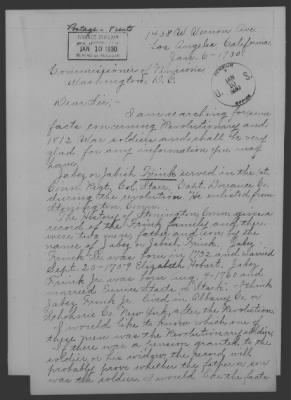 Postage - 2 cents
1438 W. Vernon Ave.
Los Angeles California.
Jan. 6 - 1930.
JAN 10 1930
U. S.
Commissioner of Pensions
Washington, D. C.
Dear Sir; -
I am searching for some
facts concerning Revolutionary and
1812 War soldiers and shall be very
glad for any information you may
have.
Jabez or Jabish Frink served in the 1st
Conn. Regt., Col. Starr, Capt. Dorance Co.
during the revolution. He enlisted from
Stonington, Conn.
The History of Stonington Conn. gives a
record of the Frink families and there
were two men, father and son of the
name of Jabez or Jabish Frink. Jabez
Frink Sr. was born in 1732 and married
Sept. 20 - 1759 Elizabeth Hobart. Jabez
Frink Jr. was born 4, 1760 and
married Eunice Hall Stark - I think
Jabez Frink Jr. lived in Albany Co. or
Schoharie Co. New York, after the Revolution.
I would like to know which one of
these men was the Revolutionary soldier.
If there was a pension granted to the
soldier or his widow, the record will
probably prove whether the father or son
was the soldier. I would like the facts